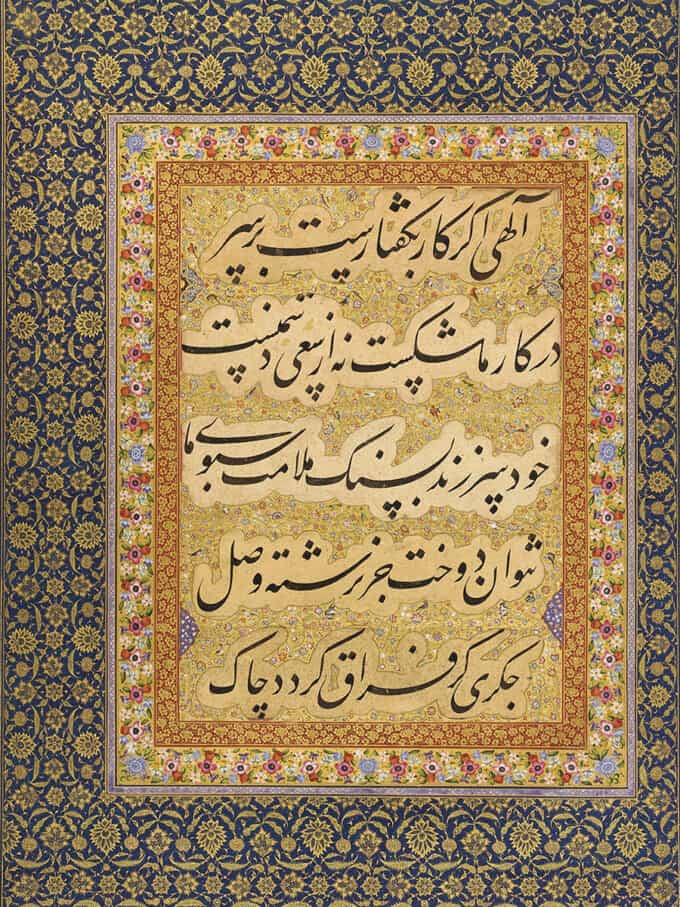 آلهی اگر کار بگفتارست بر سر
در کار ما شکست نه از سعی دشمنست
خود بسنگ ملامت سبوی ما
نتوان دوخت جز برشته وصل
جگری کز فراق گردد چاک